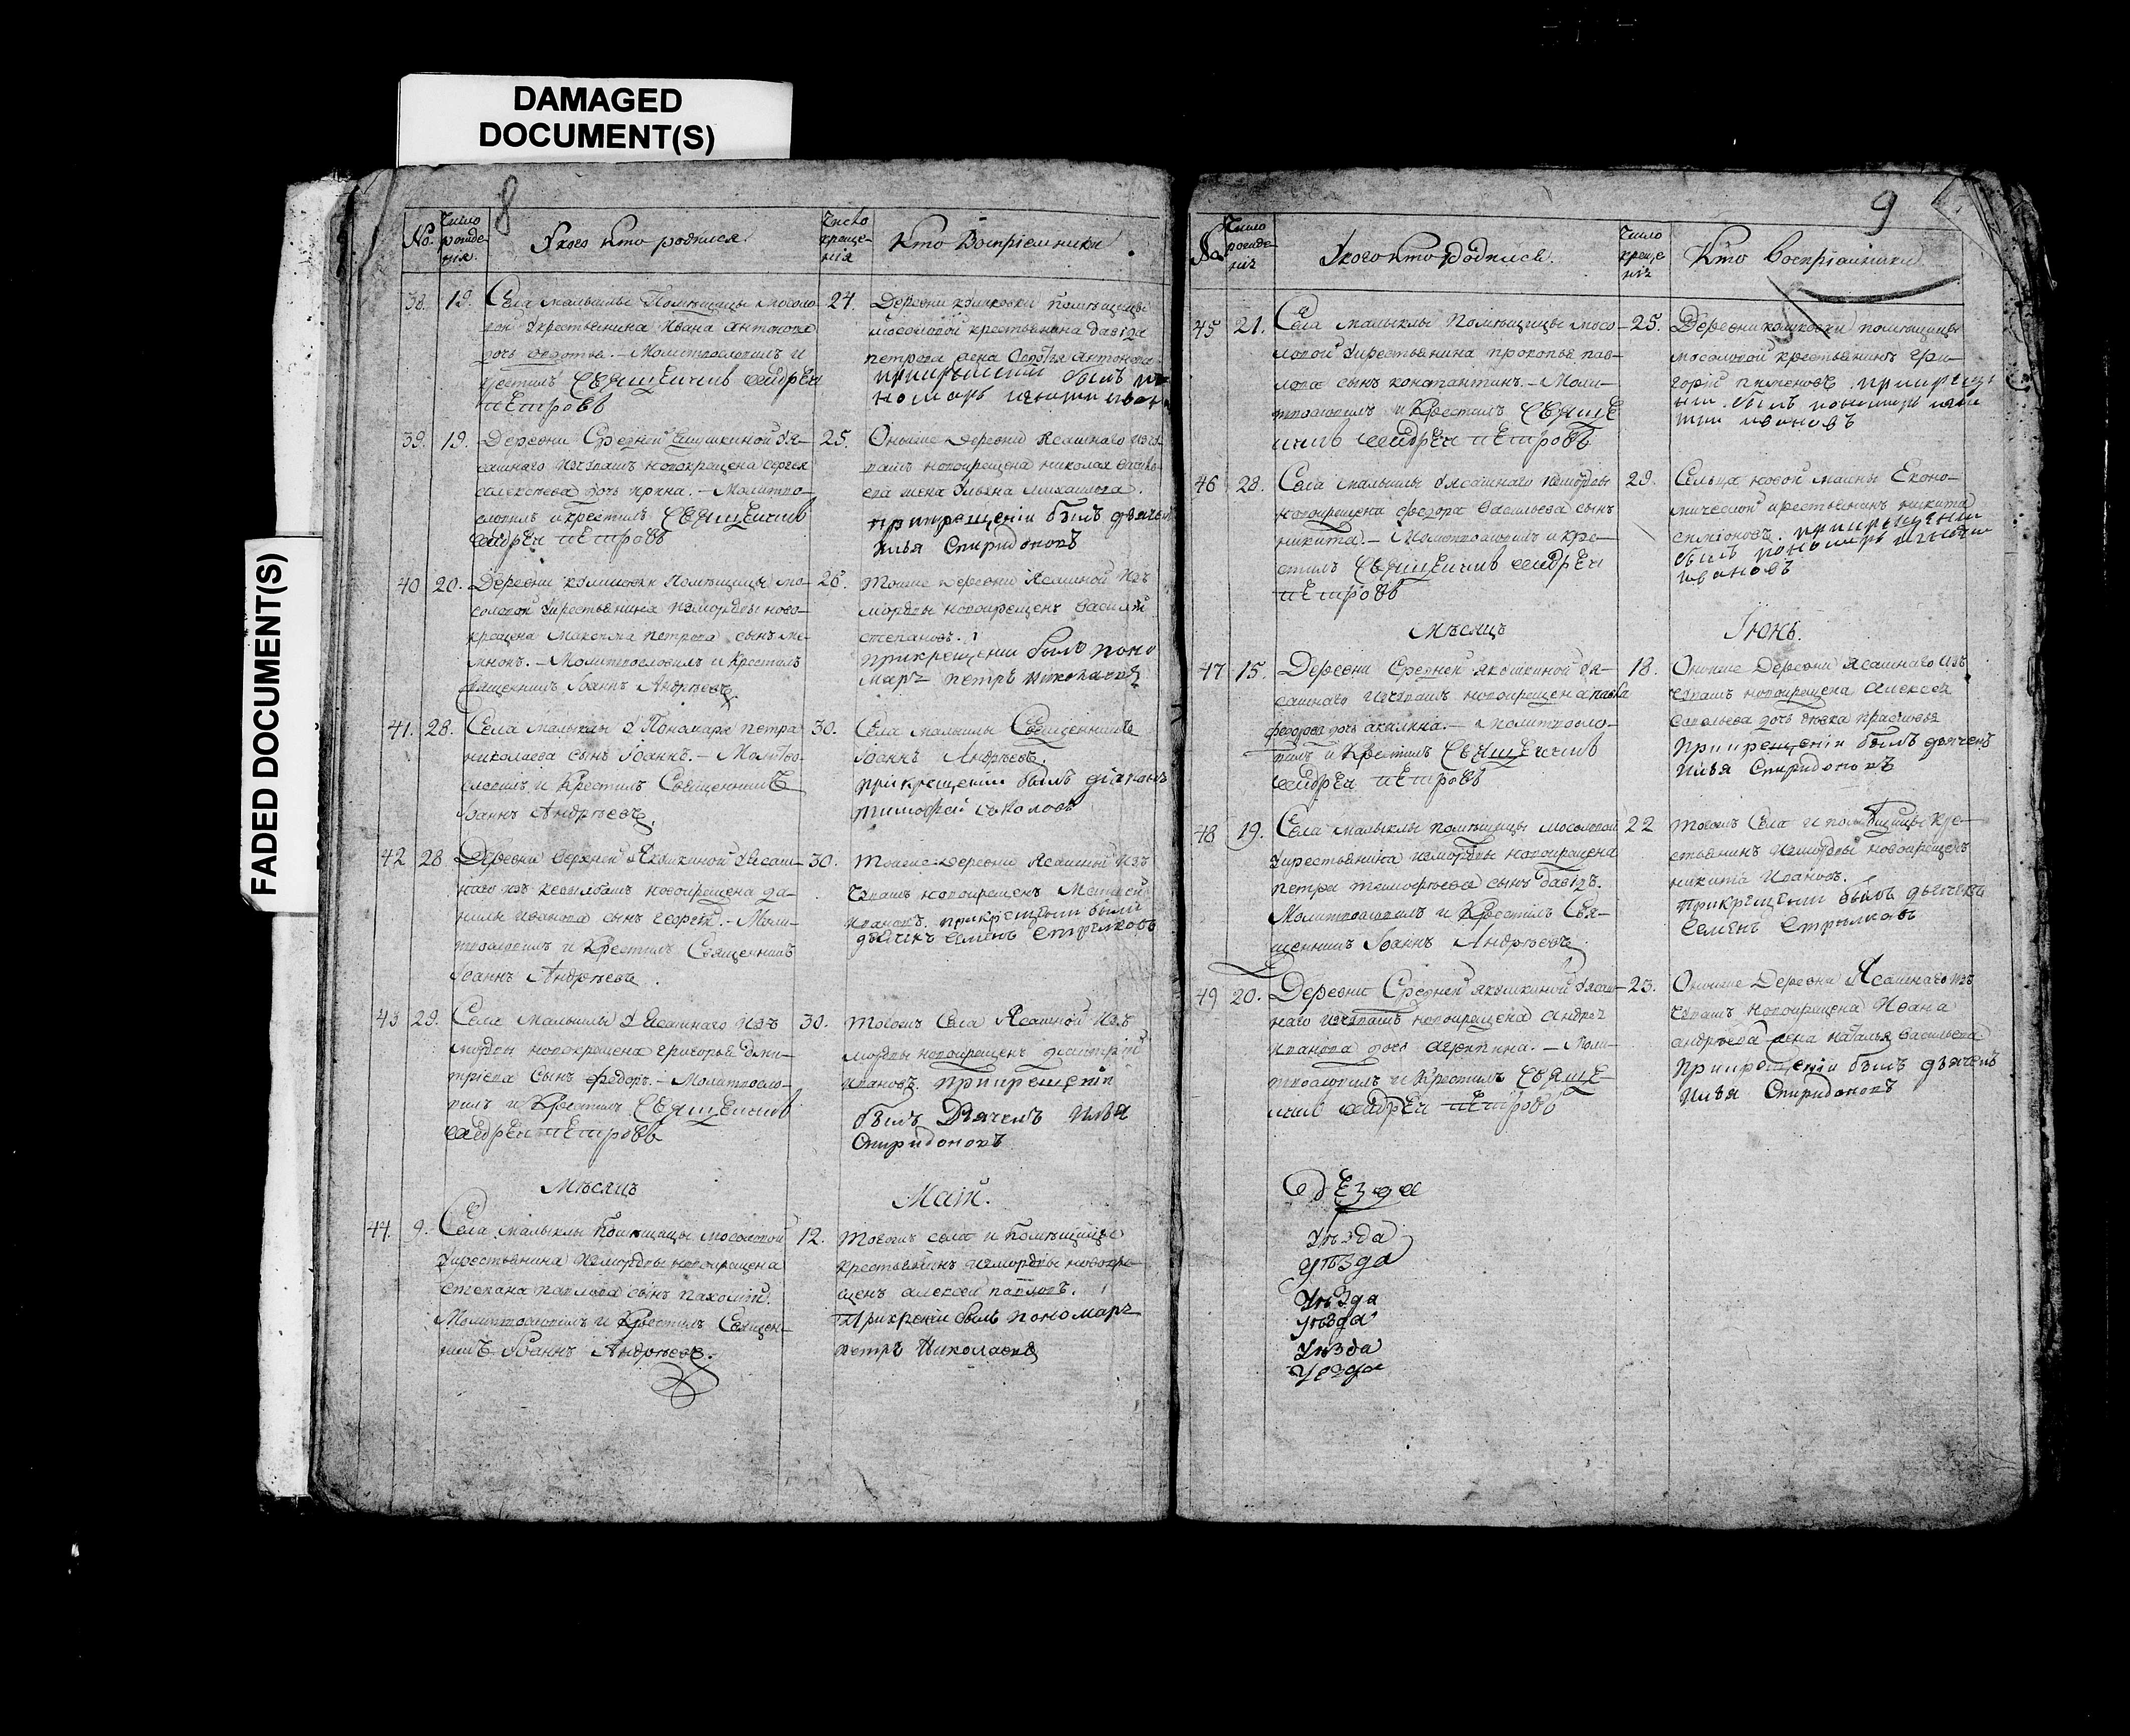 DAMAGED
DOCUMENT(S)
FADED DOCUMENT(S)
8
No.
Число рожде-
нія.
У кого кто родился
Число
креще-
нія
Кто Воспріемники
38. 19. Села малыклы Помѣщицы мосоло-
вой Укрестьянина Ивана антонова
дочь — Молитвословилъ и
крестилъ Священникъ Андрѣй
Петровъ
24. Деревни помѣщицы
мосоловой крестьянина давида
петрова жена антонова
прикрещении былъ по-
номарь
39. 19. Деревни Средней Якушкиной Уя-
сашнаго изчувашъ новокрещена сергея
алексеева дочь ирина. — Молитво-
словилъ и крестилъ Священникъ
Андрѣй Петровъ
25. Оныеже деревни Ясашнаго изчу-
вашъ новокрещена николая василь-
ева жена Ульяна михаилова.
прикрещеніи былъ дьячекъ
Илья Спиридоновъ
40 20. Деревни Помѣщицы мо-
соловой Укрестьянина измордвы ново-
крещена Максима петрова сынъ
— Молитвословилъ и крестилъ
священникъ Іоаннъ Андрѣевъ
26. Тоеже деревни Ясашной Изъ
мордвы новокрещенъ василѣй
степановъ.
прикрещении былъ поно
марь петръ николаевъ
41. 28. Села малыклы У Понамаря петра
николаева сынъ Іоаннъ. — Молитво-
словилъ и Крестилъ Священникъ
Іоаннъ Андрѣевъ.
30. Села малыклы Священникъ
Іоаннъ Андрѣевъ.
прикрещении былъ діаконъ
тимофей соколовъ
42 28 Деревни Верхней Якушкиной Уясаш-
наго изъ новокрещена да-
нилы иванова сынъ георгій. — Моли-
твословилъ и Крестилъ Священникъ
Іоаннъ Андрѣевъ.
30. Тоеже деревни Ясашной Изъ
Чувашъ новокрещенъ Матвей
Ивановъ. прикрещении былъ
дьячекъ Семенъ Стрелковъ
43 29. Села Малыклы У Ясашнаго Изъ
мордвы новокрещена григорья дми-
тріева сынъ федоръ. — Молитвосло-
вилъ и Крестилъ Священникъ
Андрѣй Петровъ
30. Тогожъ Села Ясашной Изъ
мордвы новокрещенъ дмитрій
Ивановъ. прикрещеніи
былъ Дьячекъ Илья
Спиридоновъ
Мѣсяцъ Маій.
44. 9. Села малыклы Помѣщицы мосоловой
Укрестьянина Измордвы новокрещена
степана павлова сынъ пахомій.
Молитвословилъ и Крестилъ Священ-
никъ Іоаннъ Андрѣевъ.
12. Тогожъ села и Помѣщицы
крестьянинъ Измордвы новокре-
щенъ алексей павловъ.
При креніи былъ пономарь
петръ Николаевъ
9
No.
Число
рожде-
нія
У кого кто Родился.
Число
креще
нія
Кто Воспріемники
45 21. Села малыклы Помѣщицы мосо-
ловой Укрестьянина прокопья пав-
лова сынъ константинъ. — Моли-
твословилъ и Крестилъ Священ
никъ Андрѣй Петровъ
25. Деревни помѣщицы
мосоловой крестьянинъ гри-
горій пименовъ. прикреще
нии былъ пономарь
ивановъ
46 28. Села малыклы Уясашнаго Измордвы
новокрещена федора васильева сынъ
никита. — Молитвословилъ и кре-
стилъ Священникъ Андрѣй
Петровъ
29. Сельца новой маины Еконо-
мической крестьянинъ никита
симіоновъ. прикрещении
былъ пономарь
ивановъ
Мѣсяцъ Іюнь.
47 15. Деревни Средней якушкиной Уя-
сашнаго Изчувашъ новокрещена павла
федорова дочь акилина. — Молитвосло-
вилъ и Крестилъ Священникъ
Андрѣй Петровъ
18. Оныеже Деревни Ясашнаго Изъ
Чувашъ новокрещена Алексея
савельева дочь девка прасковья
Прикрещеніи былъ дьячекъ
Илья Спиридоновъ
48 19. Села малыклы помѣщицы мосоловой
Укрестьянина измордвы новокрещена
петра тимофѣева сынъ давидъ.
Молитвословилъ и Крестилъ Свя-
щенникъ Іоаннъ Андрѣевъ
22 Тогожъ Села и помѣщицы кре-
стьянинъ Измордвы новокрещенъ
никита Ивановъ.
Прикрещении былъ дьячекъ
Семенъ Стрѣлковъ
49 20. Деревни Средней якушкиной Уясаш-
наго изчувашъ новокрещена андрея
Иванова дочь агрепина. — Моли-
твословилъ и Крестилъ Священ-
никъ Андрѣй Петровъ
23. Оныеже Деревни Ясашнаго изъ
чувашъ новокрещена Ивана
андрѣева жена наталья васильева
Прикрещеніи былъ дьячекъ
Илья Спиридоновъ
Уѣзда
Уѣзда
Уѣзда
Уѣзда
Уѣзда
Уезда